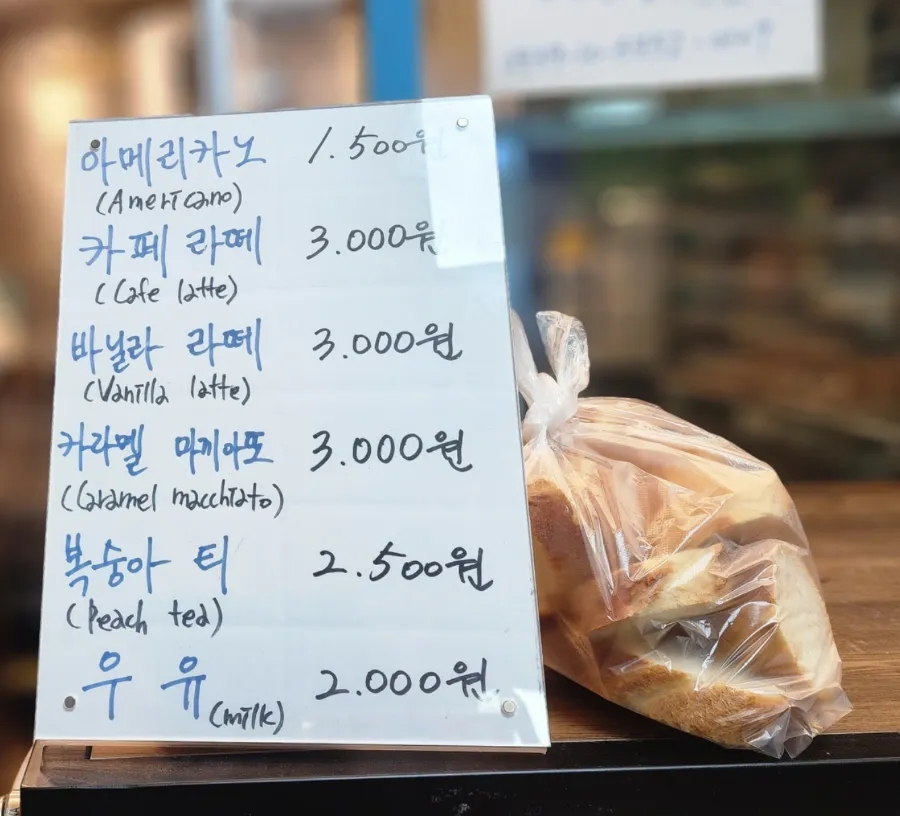 아메리카노 1.500원
(Americano)
카페 라떼 3.000원
(Cafe latte)
바닐라 라떼 3.000원
(Vanilla latte)
카라멜 마끼아또 3.000원
(Caramel macchiato)
복숭아 티 2.500원
(Peach tea)
우유 2.000원
(milk)